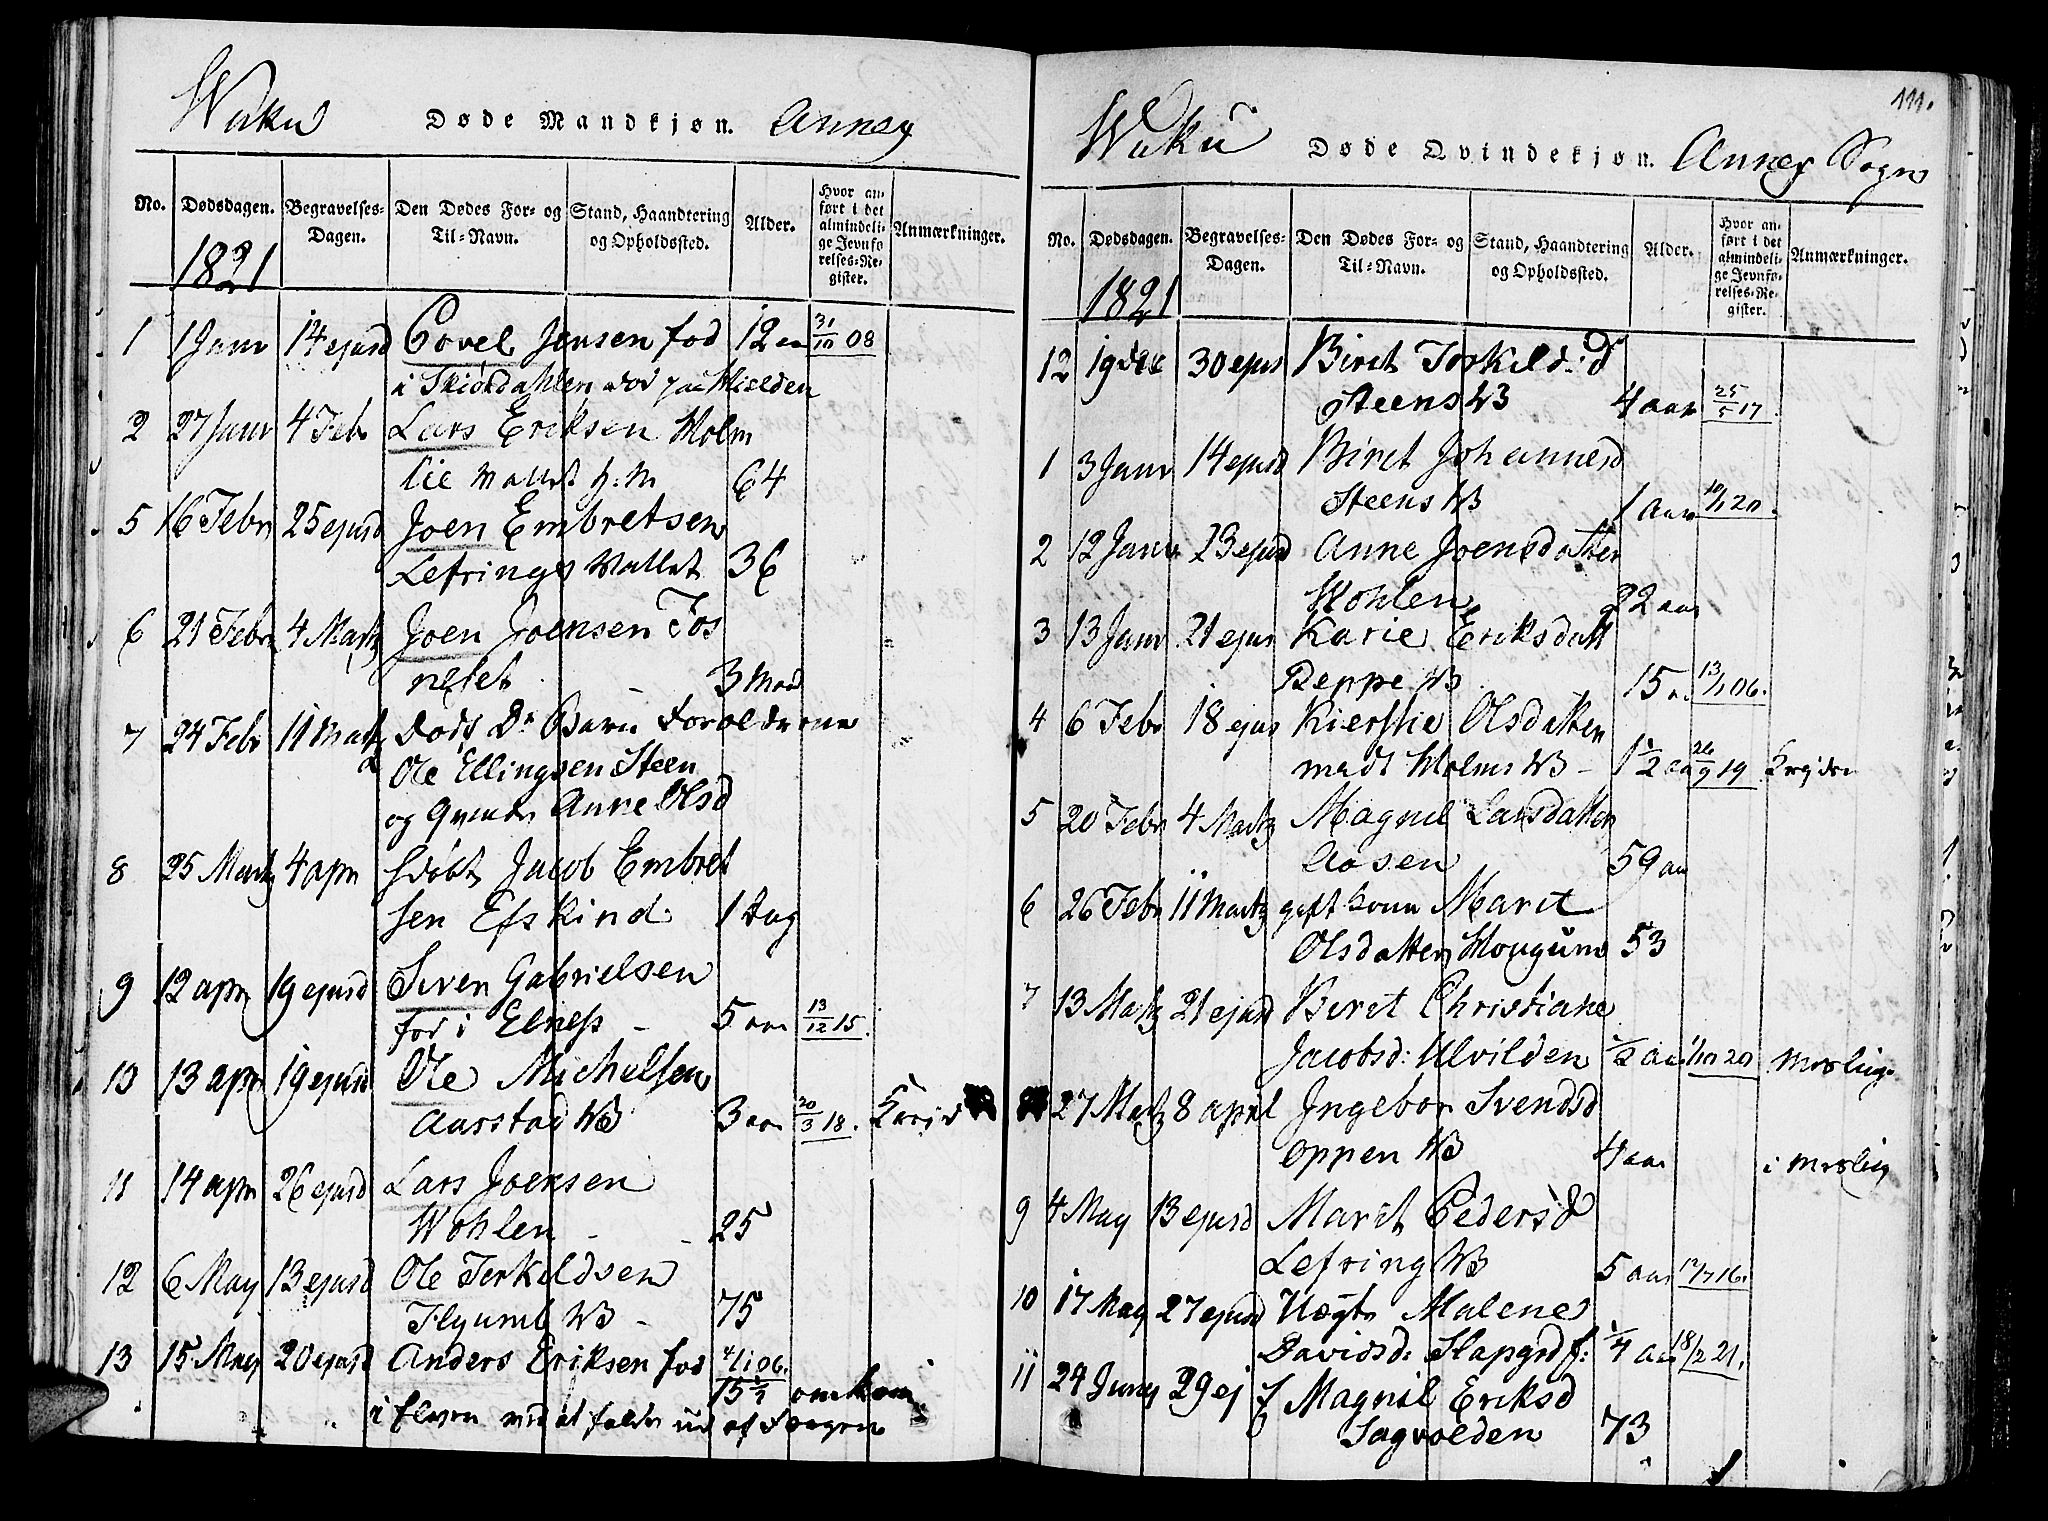 Wuku Døde Mandkjøn. Annex
No. Dødsdagen. Begravelses-Dagen. Den Dødes For- og Til-Navn. Stand, Haandtering og Opholdssted. Alder. Hvor anført i det almindelige Jevnførelses-Register. Anmærkninger.
1821
1 1 Janr 14 ejusd Povel Jensen fød 12 aa 31/10 08
i Skiørdahlen død paa Hielden
2 27 Janr 4 Febr Lars Eriksen Holm
lie Vallet 64
5 16 Febr 25 ejusd Joen Embretsen
Lefrings Vallet 36
6 21 Febr 4 Martz Joen Joensen Fos
neset 3 Maad
7 24 Febr 11 Martz Dødf Dr Barn Forældrerne
Ole Ellingsen Steen
og Qvinde Anne Olsd
8 25 Martz 4 apr hdøbt Jacob Embret
sen Efskind 1 Dag
9 12 apr 19 ejusd Sven Gabrielsen
fød i Elness - 5 aar 13/12 15.
10 13 apr 19 ejusd Ole Michelsen
Aarstad W3 3 aar 20/3 18.
11 14 apr 26 ejusd Lars Joensen
Wohlen - - 25
12 6 May 13 ejusd Ole Terkildsen
W3 - 75
13 15 May 20 ejusd Anders Eriksen fød 4/1 06.
15 1/2 omkom
i Elven ved at falde ud af
111.
Wuku Døde Qvindekjøn. Annex Sogn
No. Dødsdagen. Begravelses-Dagen. Den Dødes For- og Til-Navn. Stand, Haandtering og Opholdssted. Alder. Hvor anført i det almindelige Jevnførelses-Register. Anmærkninger.
1821
12 19 dec 30 ejus Biret Torkild:d
Steens W3 4 aar 25/5 17.
1 3 Janr 14 ejusd Biret Johannesd
Steens W3 1 aar 10/1 20.
2 12 Janr 23 ejusd Anne Joensdatter
Wohlen 22 aar
3 13 Janr 21 ejus Karie Eriksdatt
Reppe W3 15 a. 13/1 06.
4 6 Febr 18 ejus Kierstie Olsdatter
Holms W3 - 1 1/2 aa 26/9 19
5 20 Febr 4 Martz Magnil Larsdatter
Aasen 59 aa
6 26 Febr 11 Martz gift kone Marit
Olsdatter Hougum 53
7 13 Martz 21 ejusd Beret Christiane
Jacobsd: Ulvilden 1/2 aa 1/10 20 Mæsling
27 Martz 8 april Ingebor Svendsd
Oppen W3 4 aar i Mæsling
9 4 May 13 ejusd Marit Pedersd
Lefring W3 5 aar 12/7 16.
10 17 May 27 ejusd Uægte Malene
Davidsd: Slapgrd f: 1/4 aar 18/2 21.
11 24 Juny 29 ej f Magnil Eriksd
Sagvolden 73